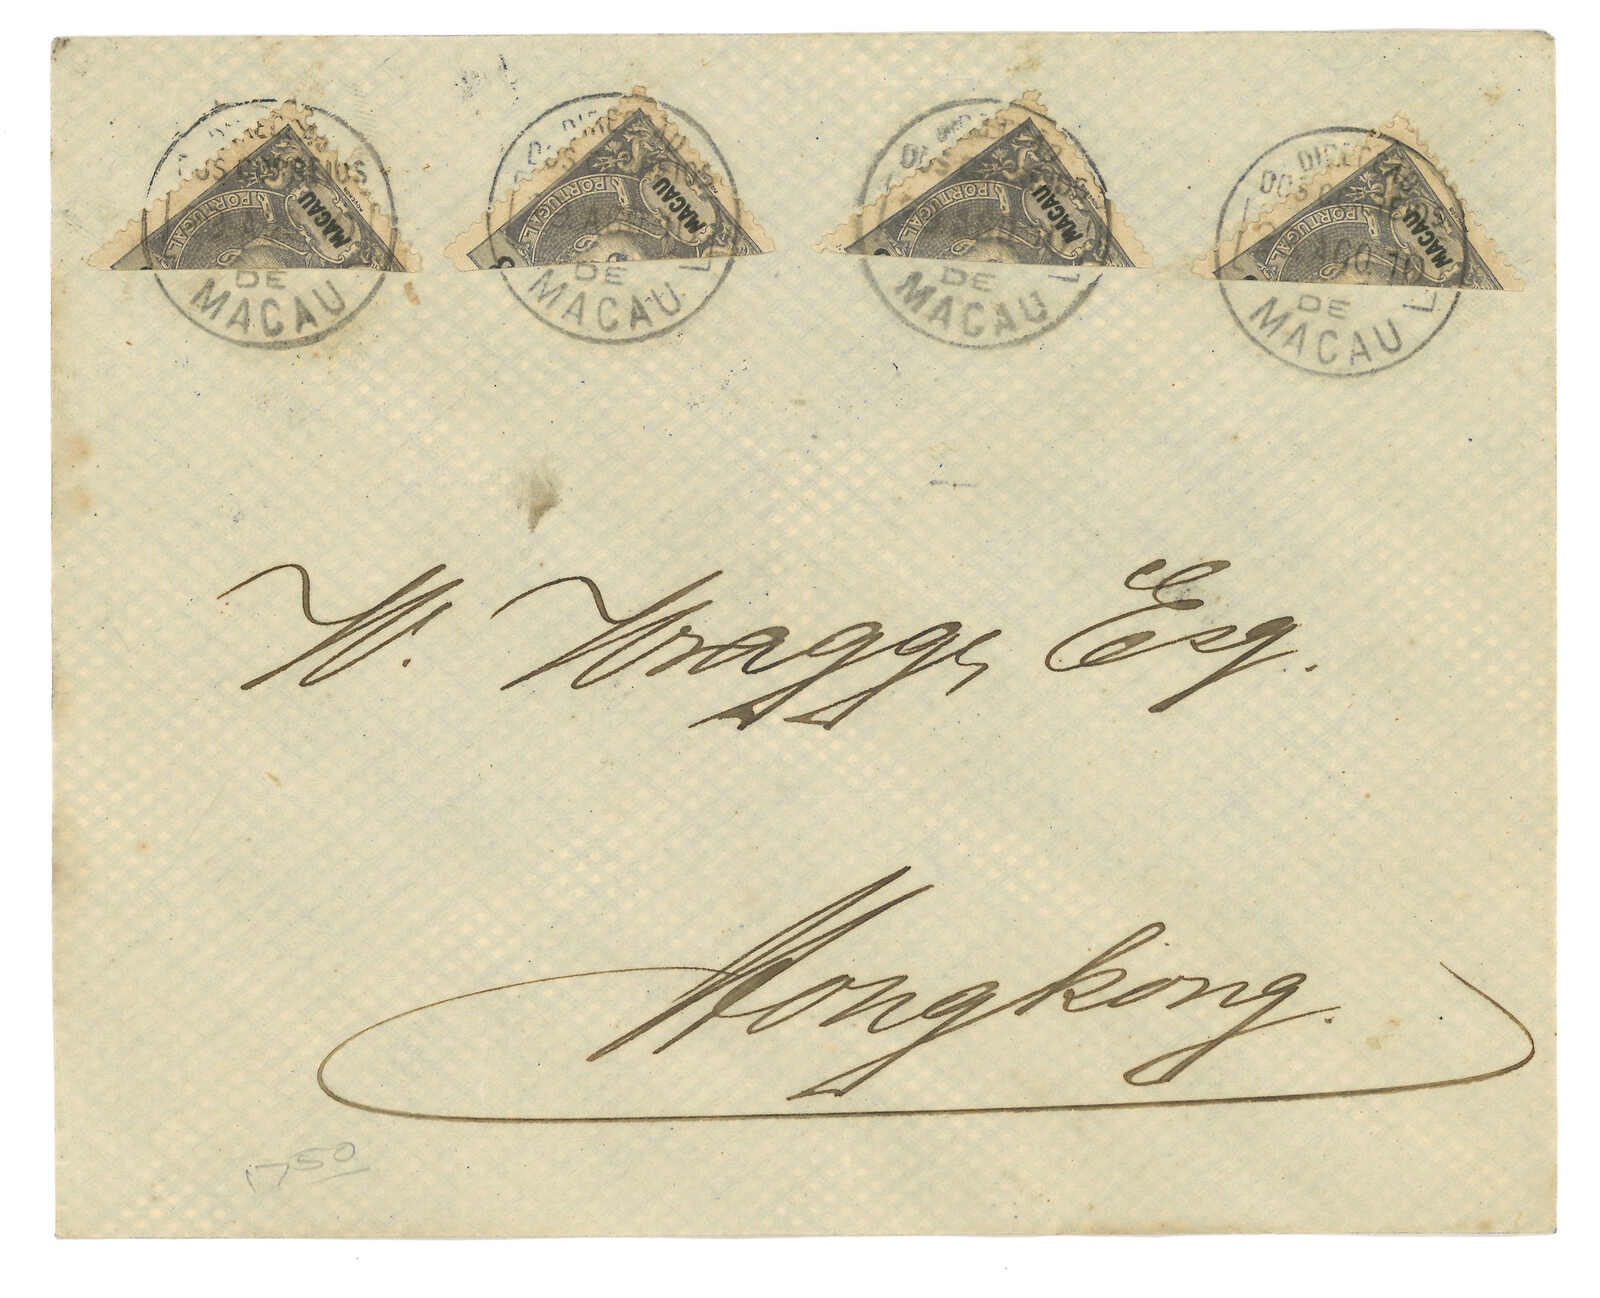 DIRECÇÃO DOS CORREIOS DE MACAU
PORTUGAL MACAU
DE MACAU
PORTUGAL MACAU
DE MACAU
PORTUGAL MACAU
DE MACAU
AGO. 10
PORTUGAL MACAU
W. Wragge, Esq.
Hongkong.
1750